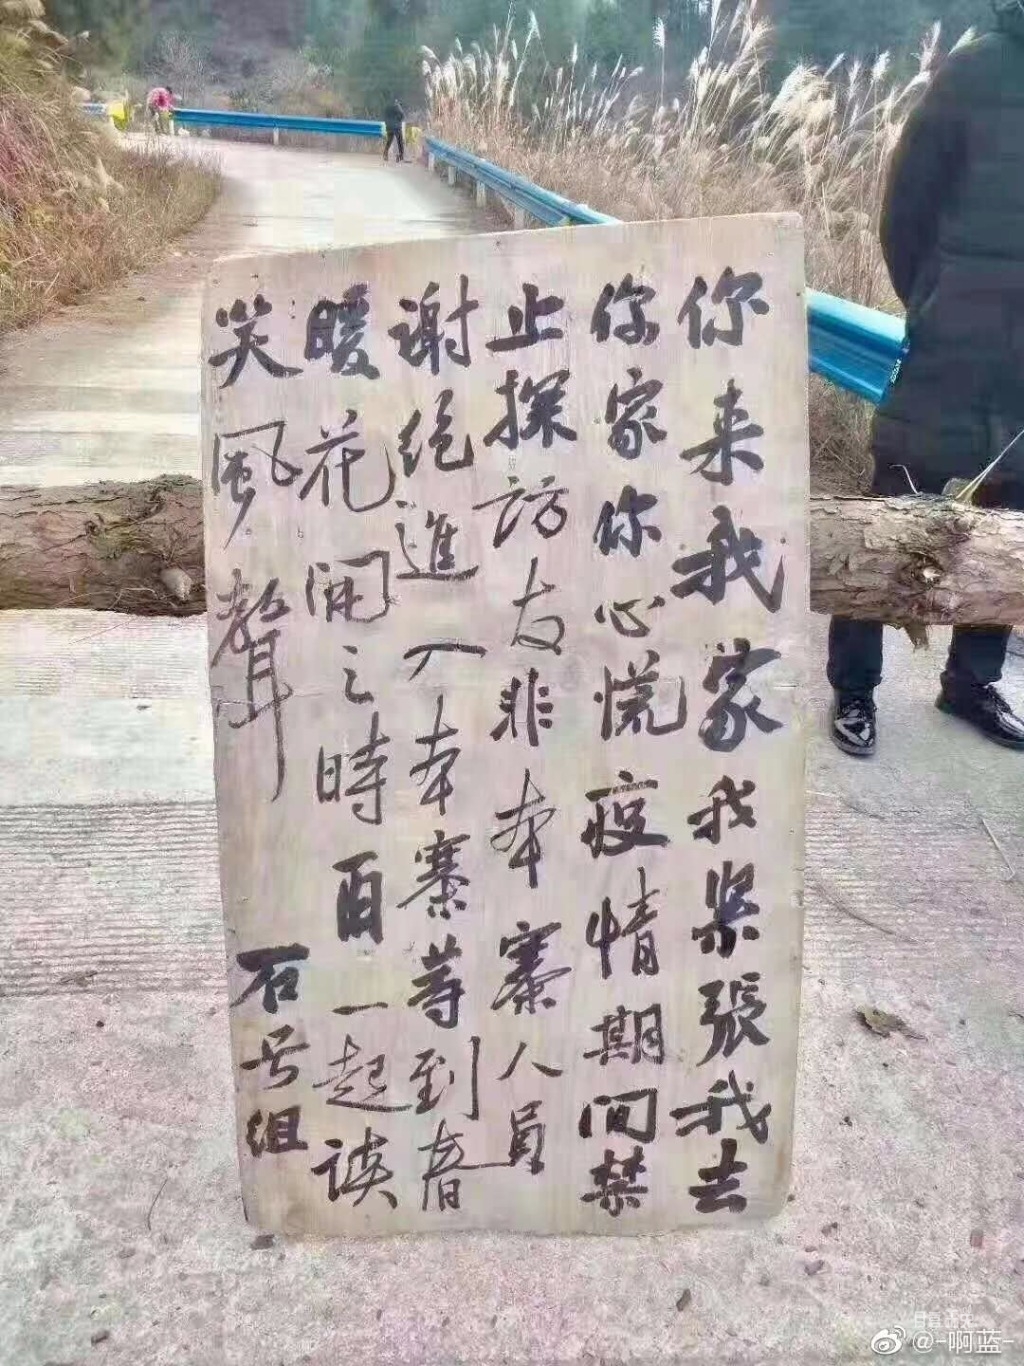 你来我家我紧張我去
你家你心慌疫情期间禁
止探访友非本寨人員
谢绝進入本寨等到春
暖花開之時再一起谈
笑風聲
石号组
@-啊蓝-